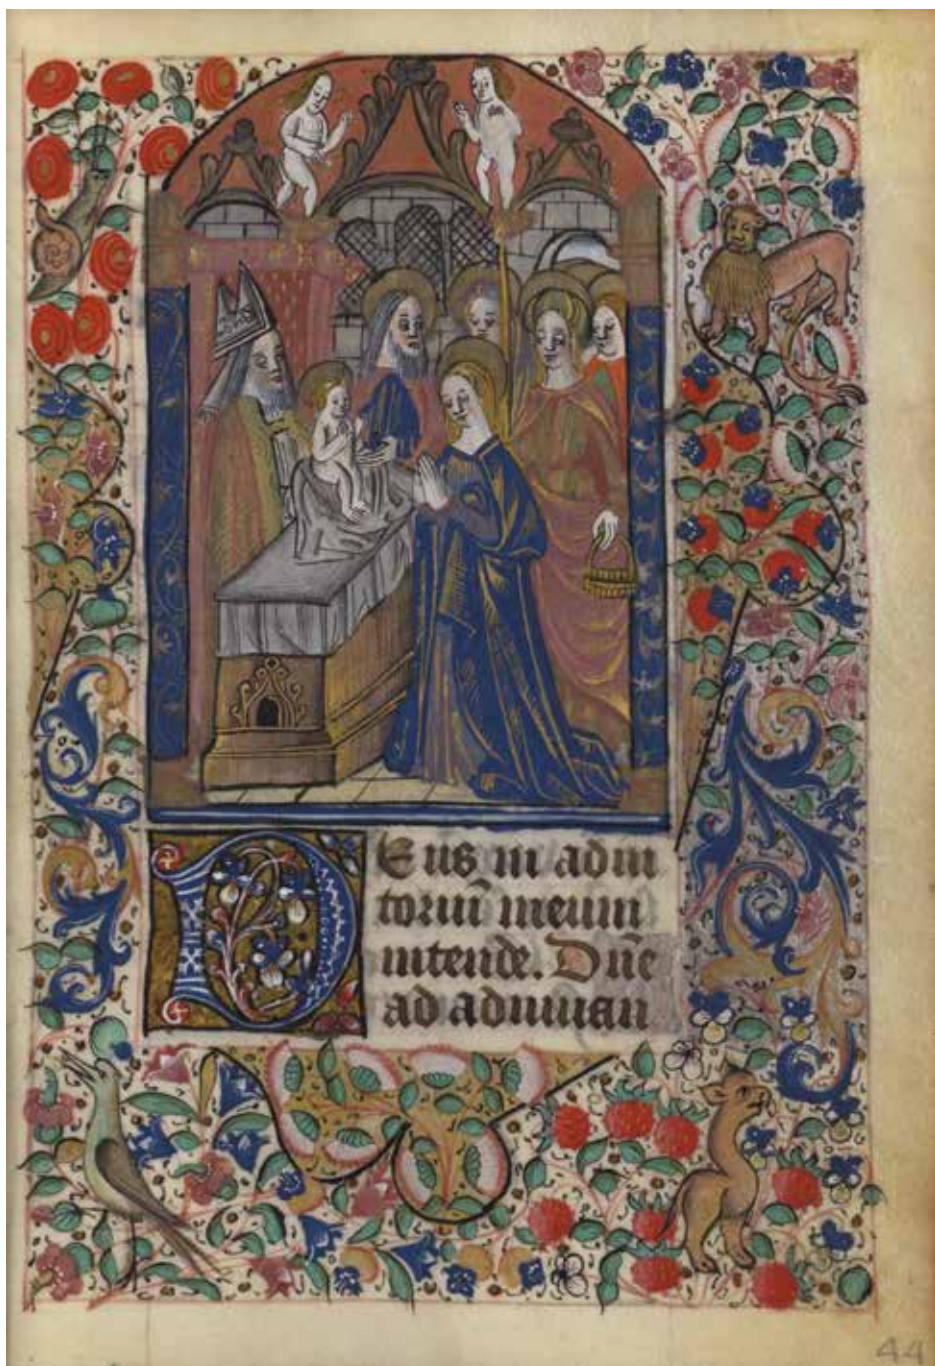 Deus in adiu
toriū meum
intende. Dn̄e
ad adiuuan
44